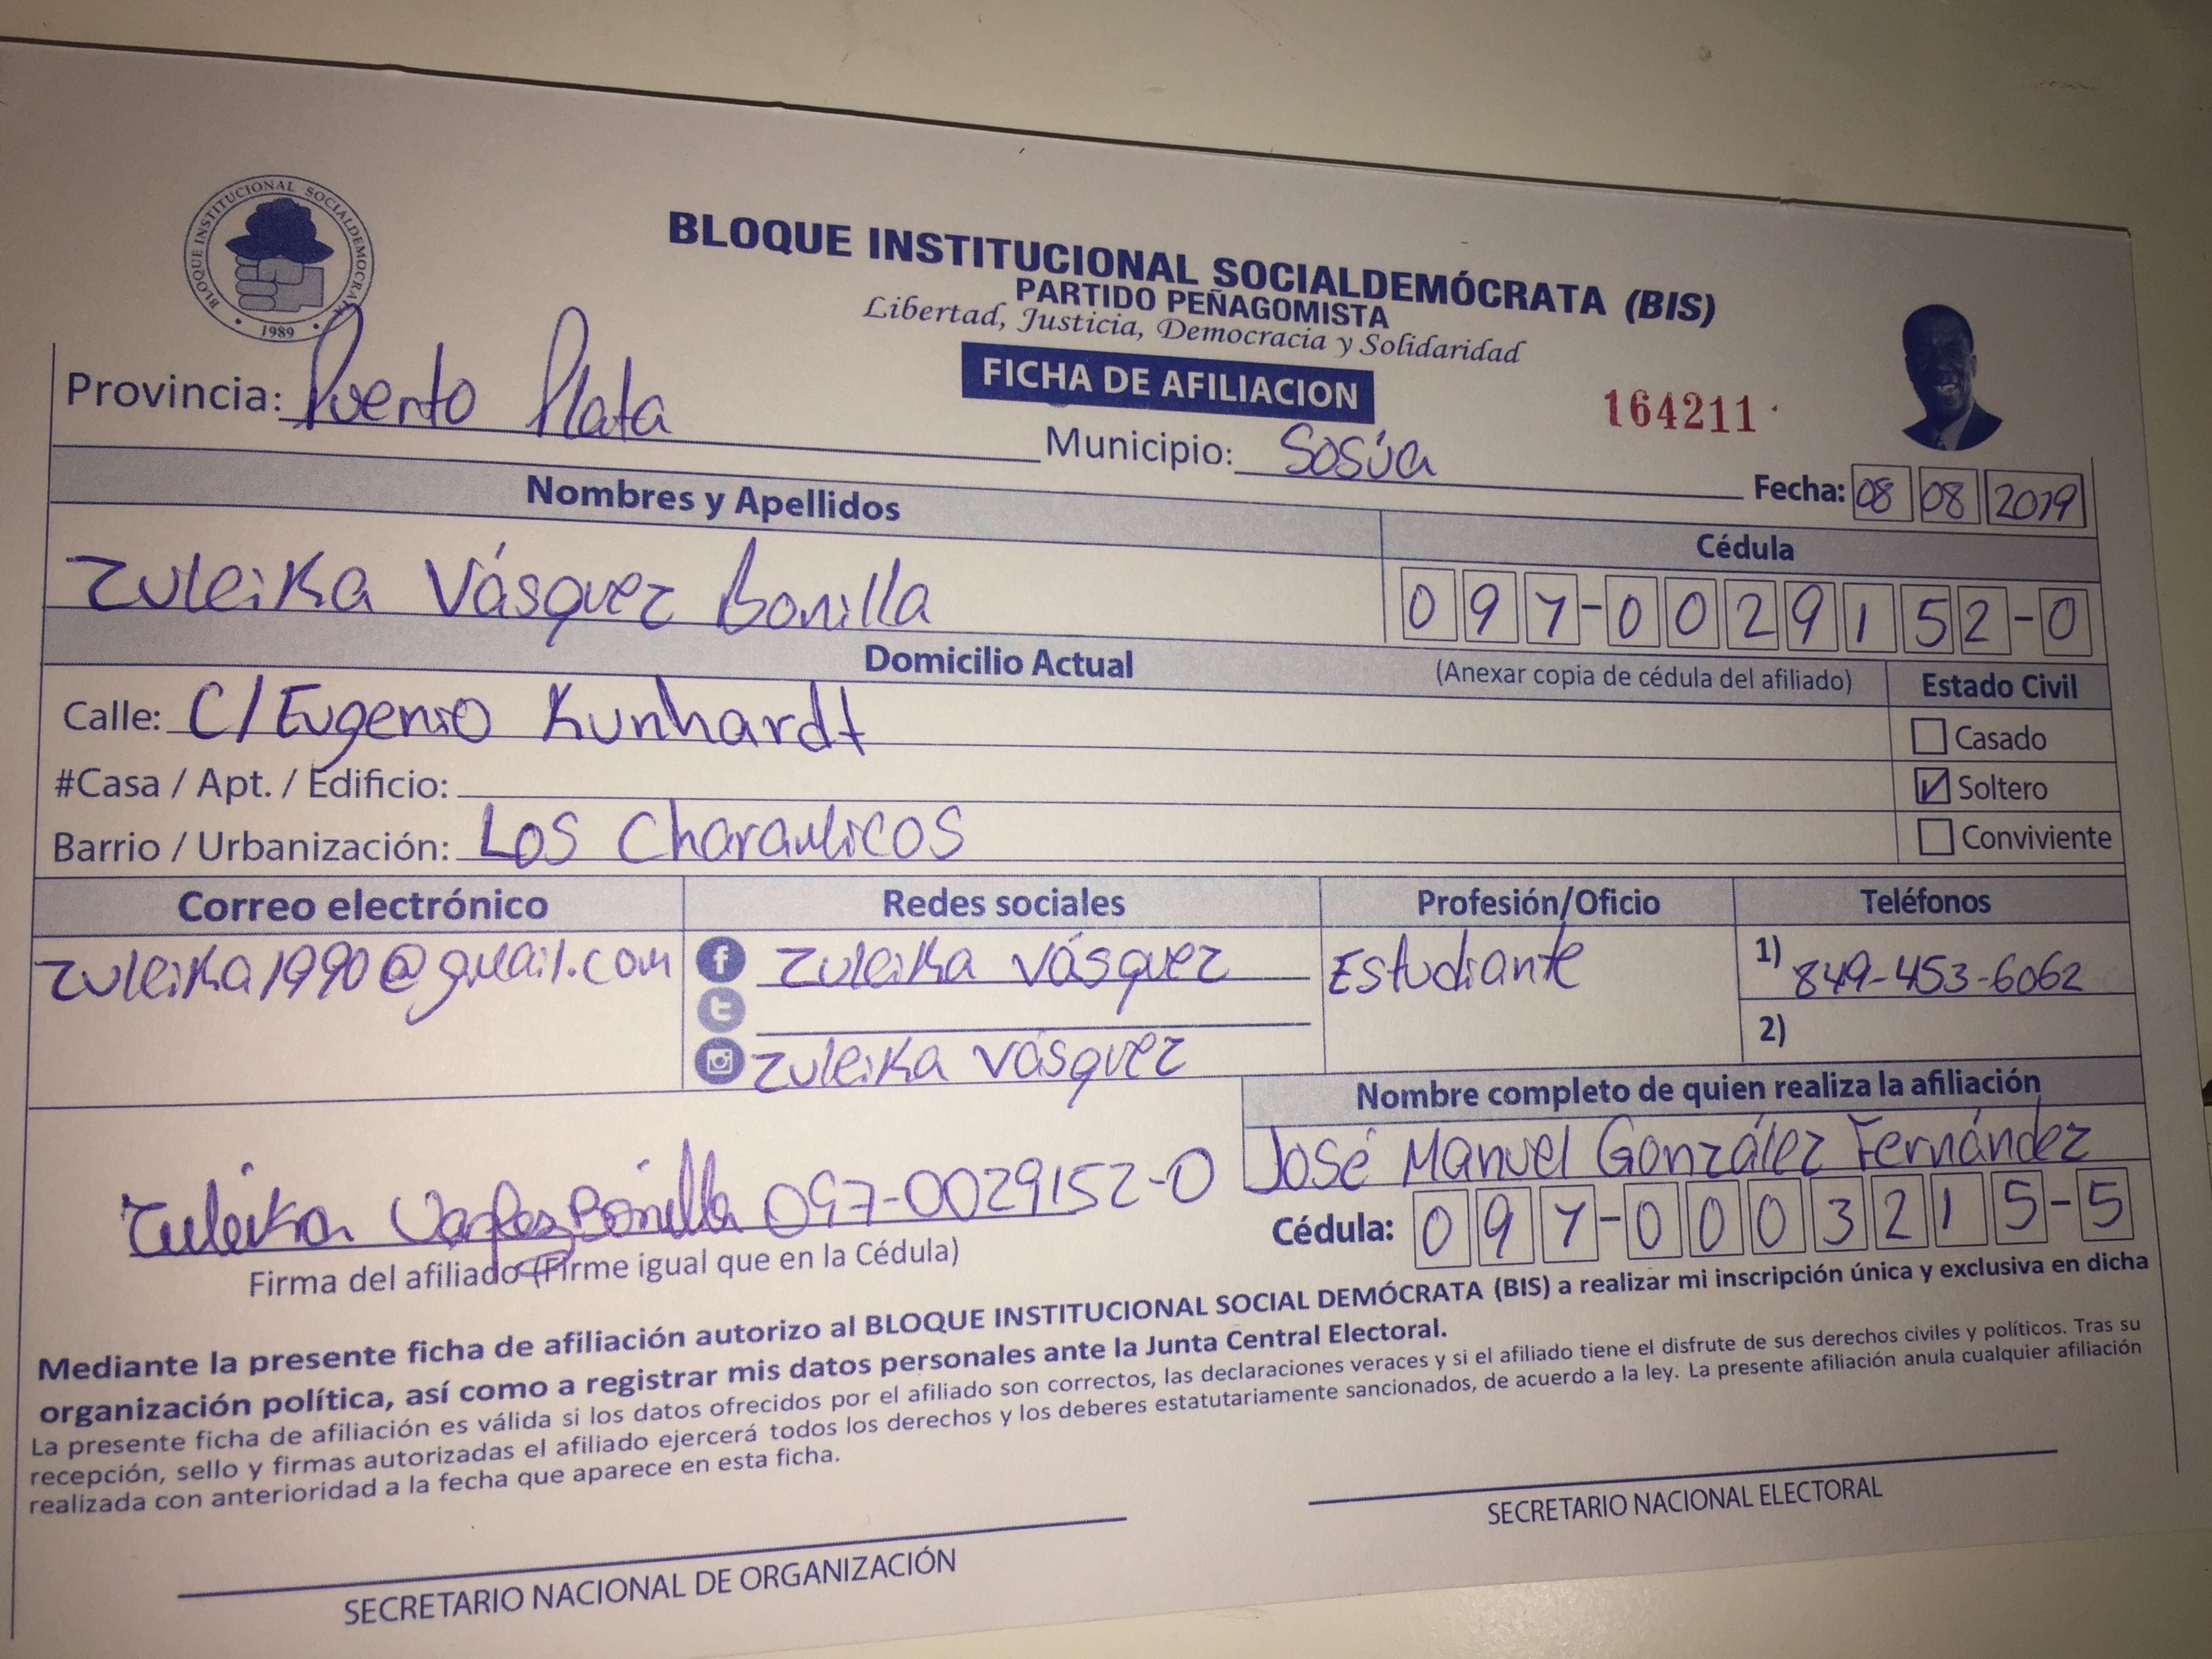 BLOQUE INSTITUCIONAL SOCIALDEMOCRATA
1989
BLOQUE INSTITUCIONAL SOCIALDEMÓCRATA (BIS)
PARTIDO PEÑAGOMISTA
Libertad, Justicia, Democracia y Solidaridad
FICHA DE AFILIACION
164211
Provincia: Puerto Plata Municipio: Sosúa Fecha: 08 08 2019
Nombres y Apellidos Cédula
Zuleika Vásquez Bonilla 097-0029152-0
Domicilio Actual (Anexar copia de cédula del afiliado) Estado Civil
Calle: C/Eugenio Kunhardt Casado
#Casa / Apt. / Edificio: Soltero
Barrio / Urbanización: Los Charamicos Conviviente
Correo electrónico Redes sociales Profesión/Oficio Teléfonos
zuleika1990@gmail.com f Zuleika Vásquez Estudiante 1) 849-453-6062
2)
Zuleika Vásquez
Nombre completo de quien realiza la afiliación
José Manuel González Fernández
Zuleika Vasquez Bonilla 097-0029152-0 Cédula: 097-0003215-5
Firma del afiliado (Firme igual que en la Cédula)
Mediante la presente ficha de afiliación autorizo al BLOQUE INSTITUCIONAL SOCIAL DEMÓCRATA (BIS) a realizar mi inscripción única y exclusiva en dicha
organización política, así como a registrar mis datos personales ante la Junta Central Electoral.
La presente ficha de afiliación es válida si los datos ofrecidos por el afiliado son correctos, las declaraciones veraces y si el afiliado tiene el disfrute de sus derechos civiles y políticos. Tras su
recepción, sello y firmas autorizadas el afiliado ejercerá todos los derechos y los deberes estatutariamente sancionados, de acuerdo a la ley. La presente afiliación anula cualquier afiliación
realizada con anterioridad a la fecha que aparece en esta ficha.
SECRETARIO NACIONAL DE ORGANIZACIÓN SECRETARIO NACIONAL ELECTORAL